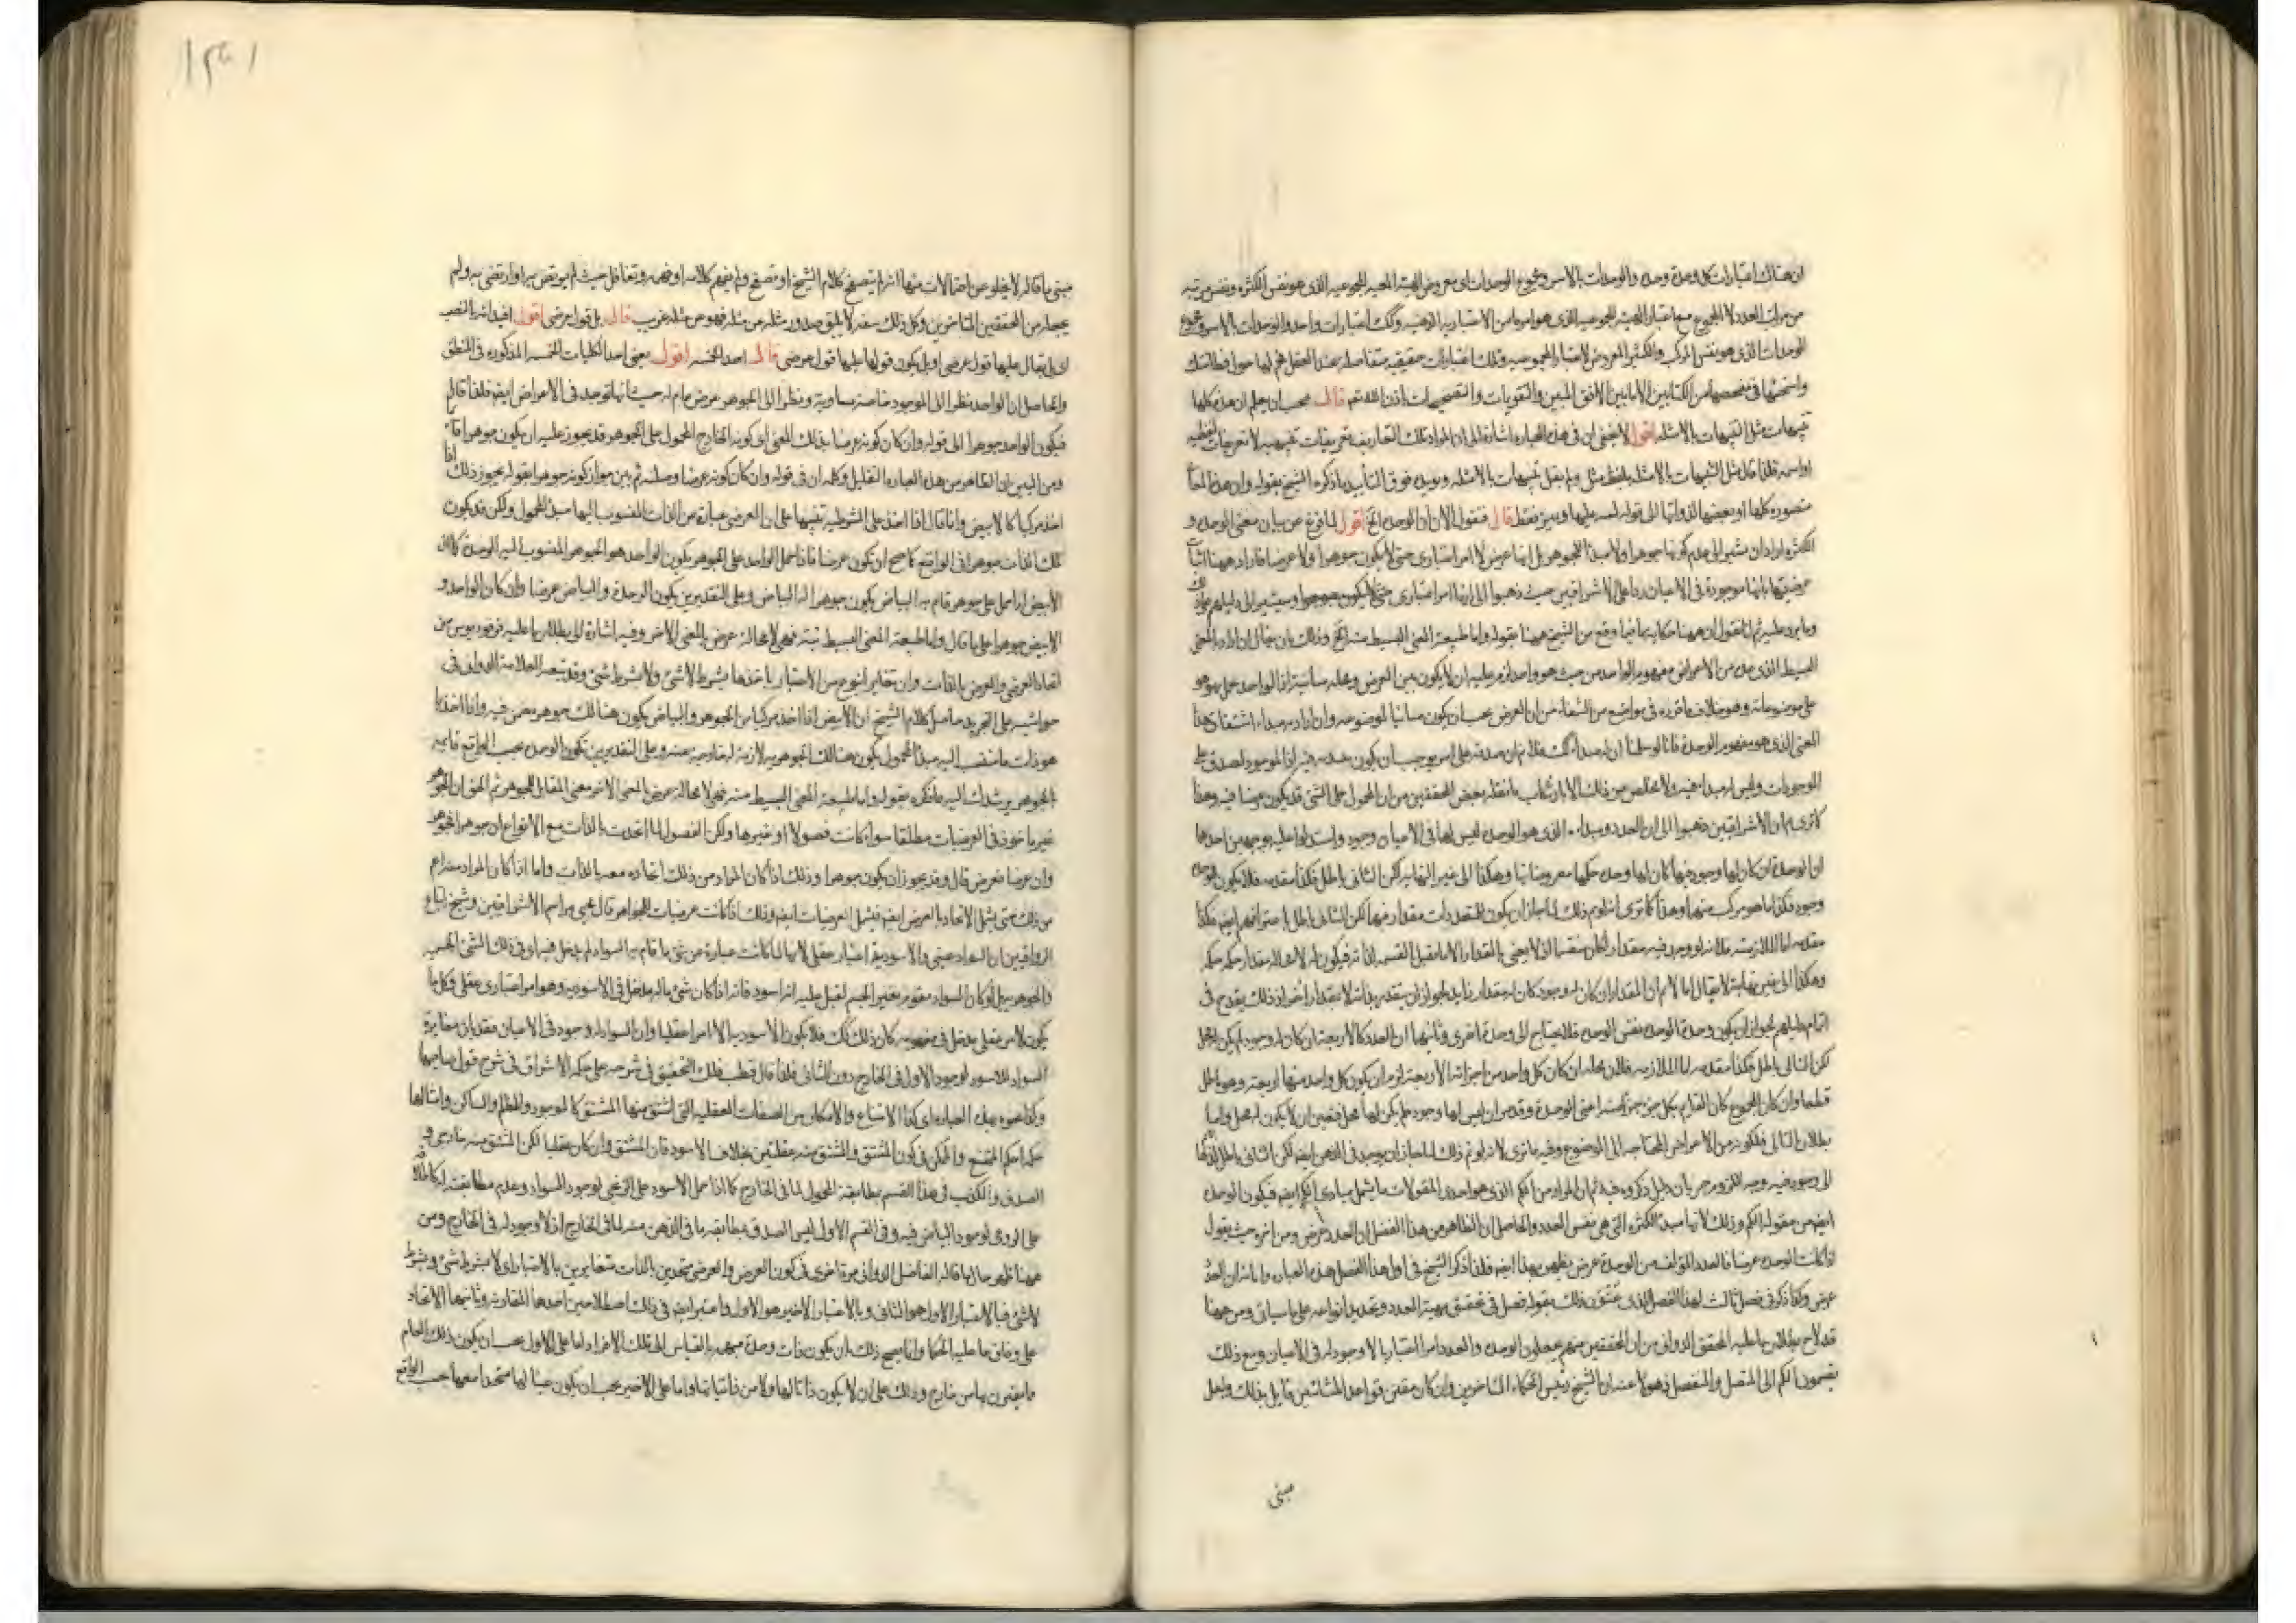 ان هناك اعتبارات كل وحدة وحدة والوحدات بالاسر ومجموع الوحدات اى معروض الهيئة المجموعيه الذى هو نفس الكثره ونفس مرتبه
من مراتب العدد لا المجموع مع اعتبار الهيئة المجموعيه الذى هو امر ما من الاعتباريه الذهنيه وتلك اعتبارات واحد والوحدات بالاسر ومجموع
الوحدات الذى هو نفس المركب والكثير المعروض لاعتبار المجموعيه وتلك اعتبارات حقيقيه متفاصله عند العقل
قال يجب ان يعلم ان هذه كلها
تنبيهات مثل التنبيهات بالامثله اقول لا يخفى ان فى هذه العباره اشارة الى ان المراد تلك التعاريف تعريفات تنبيهيه لا تعريفات لفظيه
او اسميه فلذا قال مثل التنبيهات بالامثله بلفظ مثل ولم يقل تنبيهات بالامثله ويؤيده فوق التأييد ما ذكره الشيخ بقوله وان هذا المعانى
متصوره كلها او بعضها لذواتها الى قوله ليسه عليها ويميز فقط قال فنقول الان ان الوحدة الخ اقول لما فرغ عن بيان معنى الوحده و
الكثره اراد ان يشير الى عدم كونها جوهرا ولا مبدأ للجوهر بل انها عرض لا امر اعتبارى حتى لا يكون جوهرا ولا عرضا فاراد ههنا اثبات
عرضيتها بانها موجودة فى الاعيان ردا على الاشراقيين حيث ذهبوا الى انها امر اعتبارى حتى لا يكون جوهرا وسيشير الى دليلهم
وما يرد عليه ثم انا نقول ان ههنا حكاية ما فيما وقع من الشيخ ههنا بقوله واما طبيعة المعنى البسيط منه الخ وذلك بان يقال ان اراد بالمعنى
البسيط الذى عده من الاعراض مفهوم الواحد من حيث هو واحد لزم عليه ان لا يكون بين العرض ومحله مباينة اذ الواحد يحمل هو هو
على موضوعاته وهو خلاف ما قرره فى مواضع من الشفاء من ان العرض يجب ان يكون مباينا لموضوعه وان اراد به مبداء اشتقاق هذا
المعنى الذى هو مفهوم الوحدة فانا لو سلمنا ان له مبداء كك فلا نم ان صدقه على امر يوجب ان يكون عنده فيه اذ الموجود لصدق على
الموجودات وليس له مبداء فيه ولا مخلص من ذلك الا بارتكاب ما نقله بعض المحققين من ان المحمول على الشئ قد يكون عرضا فيه وهذا
كما ترى ثم ان الاشراقيين ذهبوا الى ان العدد ومبداءه الذى هو الوحده ليس لها فى الاعيان وجود واستدلوا عليه بوجهين احدها
ان الوحدة ان كان لها وجود فيها كان لها وحدة حكمها معروضاتها وهكذا الى غير النهايه لكن الثانى باطل فكذا مقدمه فلا يكون للوحدة
وجود فكذا ما هو مركب منها وهذا كما ترى
مقدمه اما الملازمه فلانه لو وجد فيه مقدار لكان منقسما اذ لا يعنى بالمقدار الا ما يقبل القسمه لذاته فيكون له لا محاله مقدار حكمه حكمه
وهكذا الى غير نهاية لا يقال انا لا نم ان المقدار ان كان له وجود كان له مقدار زايد لجواز ان يتقدر بذاته لا بمقدار اخر اذ ذلك يقدح فى
اتمام دليلهم لجواز ان يكون وحدة الوحده نفس الوحده فلا يحتاج الى وحدة اخرى وثانيها ان العدد كالاربعة ان كان له وجود لم يكن له محل
لكن التالى باطل فكذا مقدمه اما الملازمه فلان محله ان كان كل واحد من اجزائه الاربعية لزم ان يكون كل واحد منها اربعة وهو باطل
قطعا وان كان المجموع كان القائم بكل جزء جزء منه اعنى الوحدة وقد مر ان ليس لها وجود فلم يكن لها محل فتعين ان لا يكون له محل واما
بطلان التالى فلكونه من الاعراض المحتاجه الى الموضوع وفيه ما ترى لانه لو تم ذلك لما جاز ان يوجد فى الذهن ايضا لكن الثانى باطل
الى وجوده فيه وجه اللزوم جريان دليل ذكروه فيه ثم ان المراد من الكم الذى هو احدى المقولات ما يشمل مبادى الكم ايضا فيكون الوحده
ايضا من مقوله الكم وذلك لانها مبدأ الكثره التى هى نفس العدد والحاصل ان الظاهر من هذا الفصل ان العدد عرض ومن اخره حيث يقول
اذ كانت الوحده عرضا فالعدد المؤلف من الوحدة عرض يظهر بهذا ايضا فلذا ذكر الشيخ فى اول هذا الفصل هذه العباره واما ان العدد
عرض وكم ذكر فى فصل ثالث لهذا الفصل الذى عنون ذلك بقوله فصل فى تحقيق مهية العدد وتحديد انواعه على ما سياتى ومن ههنا
قد لاح بطلان ما عليه المحقق الدوانى من ان المحققين منهم يجعلون الوحده والعدد امرا اعتباريا لا وجود له فى الاعيان ومع ذلك
يقسمون الكم الى المتصل والمنفصل ذهولا عنه ان الشيخ رئيس الحكماء المتاخرين وان كان مقنن قواعد المشائين قايل بذلك ولعل
مبنى
مبنى ما قاله لا يخلو عن احتمالات منها انه لم يتصفح كلام الشيخ او تصفح ولم يفهم كلامه او فهمه وتغافل حيث لم يرتض به او ارتضى به ولم
يجعله من المحققين المتاخرين وكل ذلك سفه لا يليق صدور مثله عن مثله فهو من مثله غريب قال بل قولا عرضى اقول افيد انه بالنصب
اى بل يقال عليها قول عرضى او بل يكون قولها عليها قول عرضى قال احد الخمسه اقول يعنى احد الكليات الخمسه المذكوره فى المنطق
والحاصل ان الواحد نظرا الى الموجود خاصة مساوية ونظرا الى الجوهر عرض عام له حيث انها توجد فى الاعراض ايضا فلذا قال
فيكون الواحد جوهرا الى قوله وان كان كونه عرضا بذلك المعنى اى كونه الخارج المحمول على الجوهر قد يجوز عليه ان يكون جوهرا
ومن البين ان الظاهر من هذه العباره التقليل وكلمه ان فى قوله وان كان كونه عرضا وصليه ثم بين جواز كونه جوهرا بقوله يجوز ذلك اذا
اخذ مركبا كالابيض وانما قال اذا اخذ على الشرطيه تنبيها على ان العرضى عبارة من الذات المنسوب اليها مبدأ المحمول ولكن قد يكون
تلك الذات جوهرا فى الواقع كما صح ان تكون عرضا فاذا حمل الواحد على الجوهر يكون الواحد هو الجوهر المنسوب اليه الوحدة كما ان
الابيض اذا حمل على جوهر قام به البياض يكون جوهرا له البياض وعلى التقديرين يكون الوحدة والبياض عرضا وان كان الواحد و
الابيض جوهرا على ما قال واما طبيعة المعنى البسيط منه فهى لا محالة عرض بالمعنى الاخر وفيه اشارة الى بطلان ما عليه فرفوريوس من
اتحاد العرضى والعرض بالذات وان تغاير بنوع من الاعتبار باخذها بشرط لا شئ ولا بشرط شئ وقد تبعه العلامة الدوانى فى
حواشيه على التجريد حاصل كلام الشيخ ان الابيض اذا اخذ مركبا من الجوهر والبياض يكون هنالك جوهر معين فيه واذا اخذ كما
هو ذات ما ينسب اليه مبدأ المحمول يكون هنالك الجوهريه لازمة له خارجيه عنه وعلى التقديرين تكون الوحده بحسب الواقع قائمه
بالجوهر يرشدك اليه ما ذكره بقوله واما طبيعة المعنى البسيط منه فهى لا محاله عرض بالمعنى الاخر معنى المقابل للجوهر ثم الحق ان الجوهر
غير ماخوذ فى العرضيات مطلقا سواء كانت فصولا او غيرها ولكن الفصول لما اتحدت بالذات مع الانواع ان جوهرا فجوهر
وان عرضا فعرض قال وقد يجوز ان يكون جوهرا وذلك اذا كان المراد من ذلك اتحاده معه بالذات واما اذا كان المراد منه اعم
من ذلك حتى يشمل الاتحاد بالعرض ايضا فيشمل العرضيات ايضا وذلك اذا كانت عرضيات للجواهر قال محيى مراسم الاشراقيين وشيخ اتباع
الرواقيين ان السواد عينى والاسودية اعتبار عقلى لانها لما كانت عبارة عن شئ ما قام به السواد لم يدخل فيه اى فى ذلك الشئ الجسميه
والجوهريه بل لو كان السواد يقوم بغير الجسم لقيل عليه انه اسود فانه اذا كان شئ ما له مدخل فى الاسوديه وهو امر اعتبارى عقلى وكل ما
يكون لامر عقلى مدخل فى مفهومه كان ذلك كك فلا يكون الاسوديه الا امرا عقليا وان السواد له وجود فى الاعيان فقد بان مغايرة
السواد للاسود لوجود الاول فى الخارج دون الثانى فلذا قال قطب فلك التحقيق فى شرحه على حكمة الاشراق فى شرح قول صاحبها
وكذا نحوه بهذه العباره اى كذا الامتناع والامكان من الصفات العقليه التى اشتق منها المشتق كالموجود والمظلم والساكن وامثالها
حكمها حكم الممتنع والممكن فى كون المشتق والمشتق منه عقليين بخلاف الاسود فان المشتق وان كان عقليا لكن المشتق منه خارجى و
الصدق والكذب فى هذا القسم بمطابقة المحمول لما فى الخارج كما اذا حمل الاسود على الزنجى لوجود السواد وعدم مطابقته له كاطلاقه
على الرومى لوجود البياض فيه وفى القسم الاول ليس الصدق مطابقه ما فى الذهن منه لما فى الخارج اذ لا وجود له فى الخارج ومن
ههنا ظهر حال ما قاله الفاضل الدوانى مرة اخرى فى كون العرض والعرضى متحدين بالذات متغايرين بالاعتبار اى لا بشرط شئ وبشرط
لا شئ فبالاعتبار الاول هو الثانى وبالاعتبار الاخير هو الاول واعتبر ايضا فى ذلك اصطلاحين احدها المقارنة وثانيها الاتحاد
على وفاق ما عليه الحكماء وانما يصح ذلك بان يكون ذات وحدة مبهمه بالقياس الى تلك الافراد اما على الاول يجب ان يكون ذلك العام
ما يقترن بها من خارج وذلك على ان لا يكون ذاتا لها ولا من ذاتياتها واما على الاخير يجب ان يكون عينا لها متحدا معها بحسب الواقع